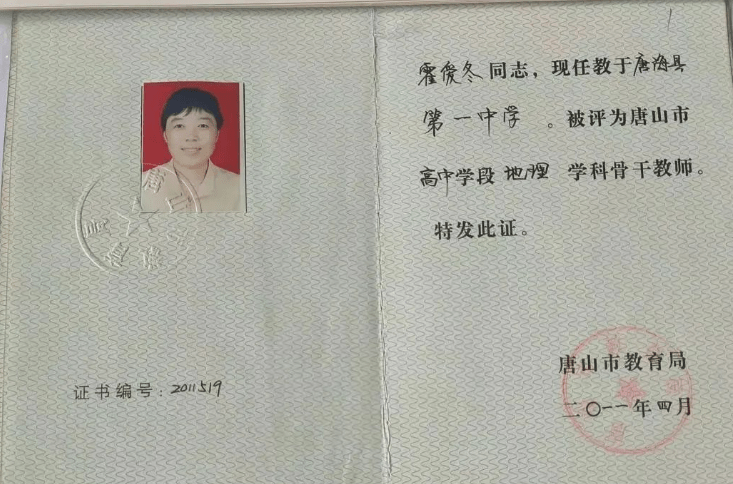 证书编号：2011519
霍俊冬同志，现任教于唐海县
第一中学 。被评为唐山市
高中学段 地理 学科骨干教师。
特发此证。
唐山市教育局
二〇一一年四月